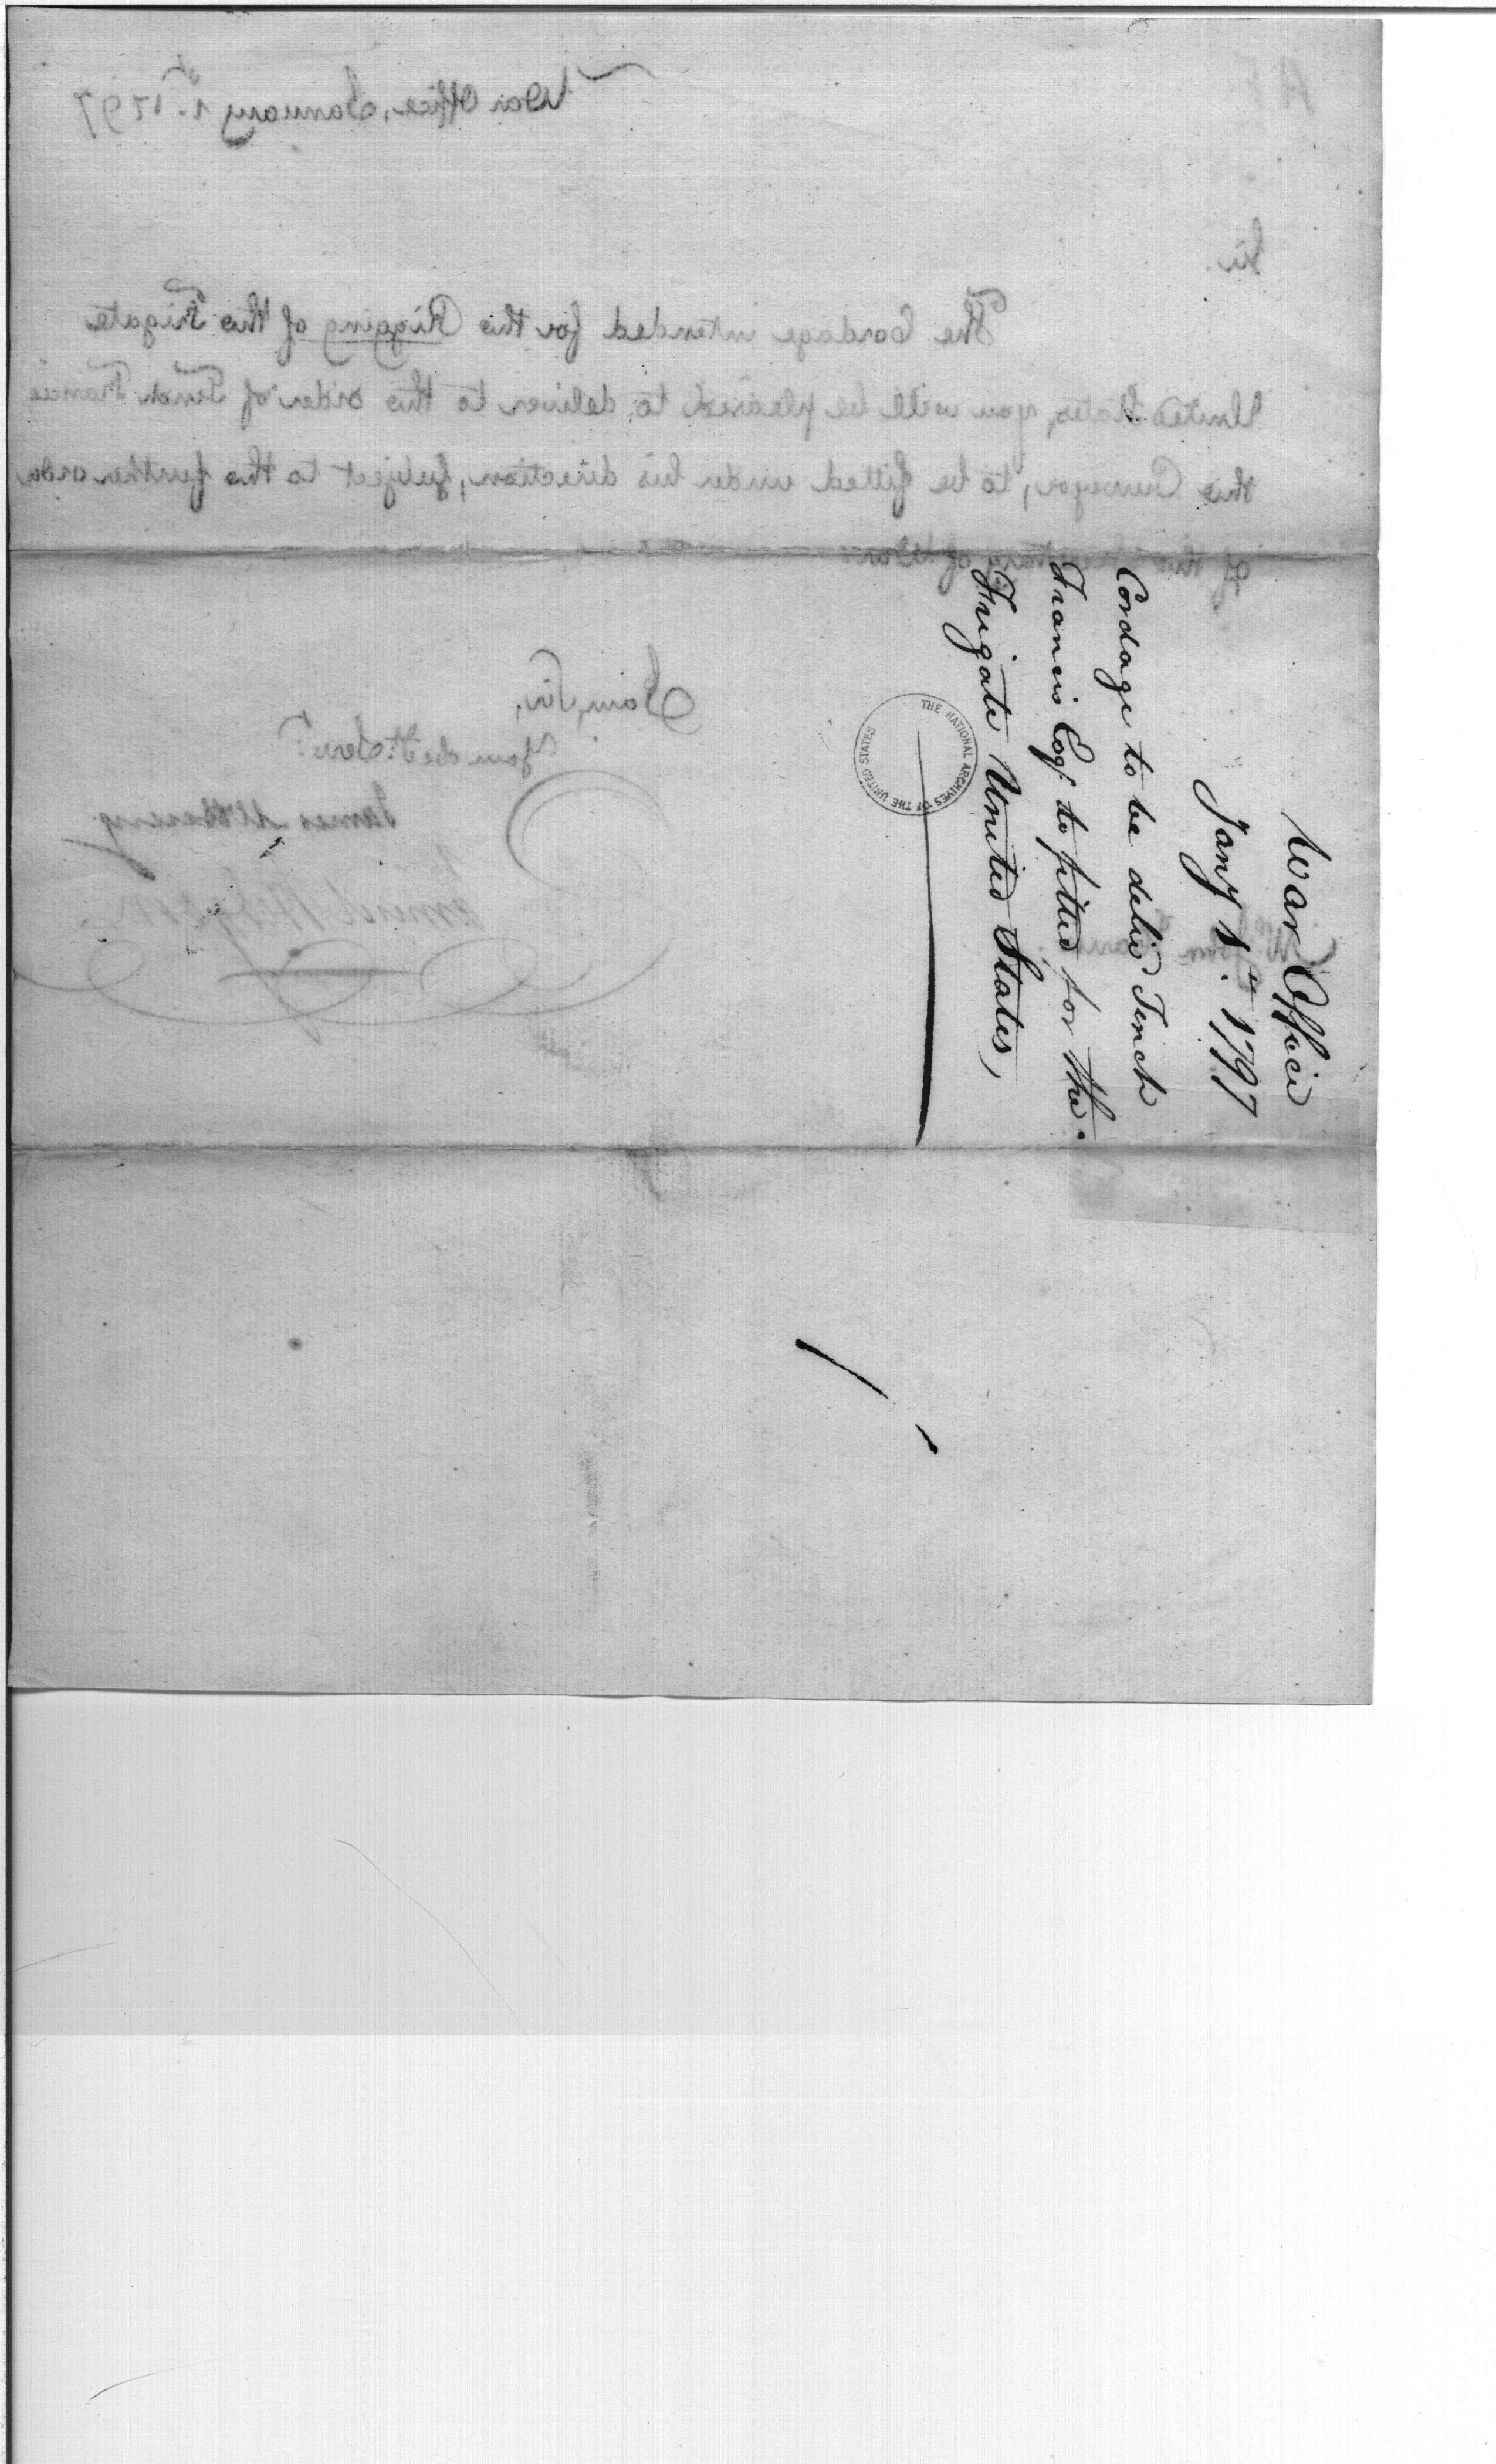 War Office
Jany 1st. 1797
Cordage to be delivd Tench
Francis Esqr. to fitted for the
Frigate United States,
THE NATIONAL ARCHIVES OF THE UNITED STATES
War Office, January 1st. 1797
Sir.
The Cordage intended for the Rigging of the Frigate
United States, you will be pleased to deliver to the order of Tench Francis
the Purveyor, to be fitted under his direction, subject to the further order
of the Secretary of War.
I am, Sir,
Your obedt. Servt.
James McHenry